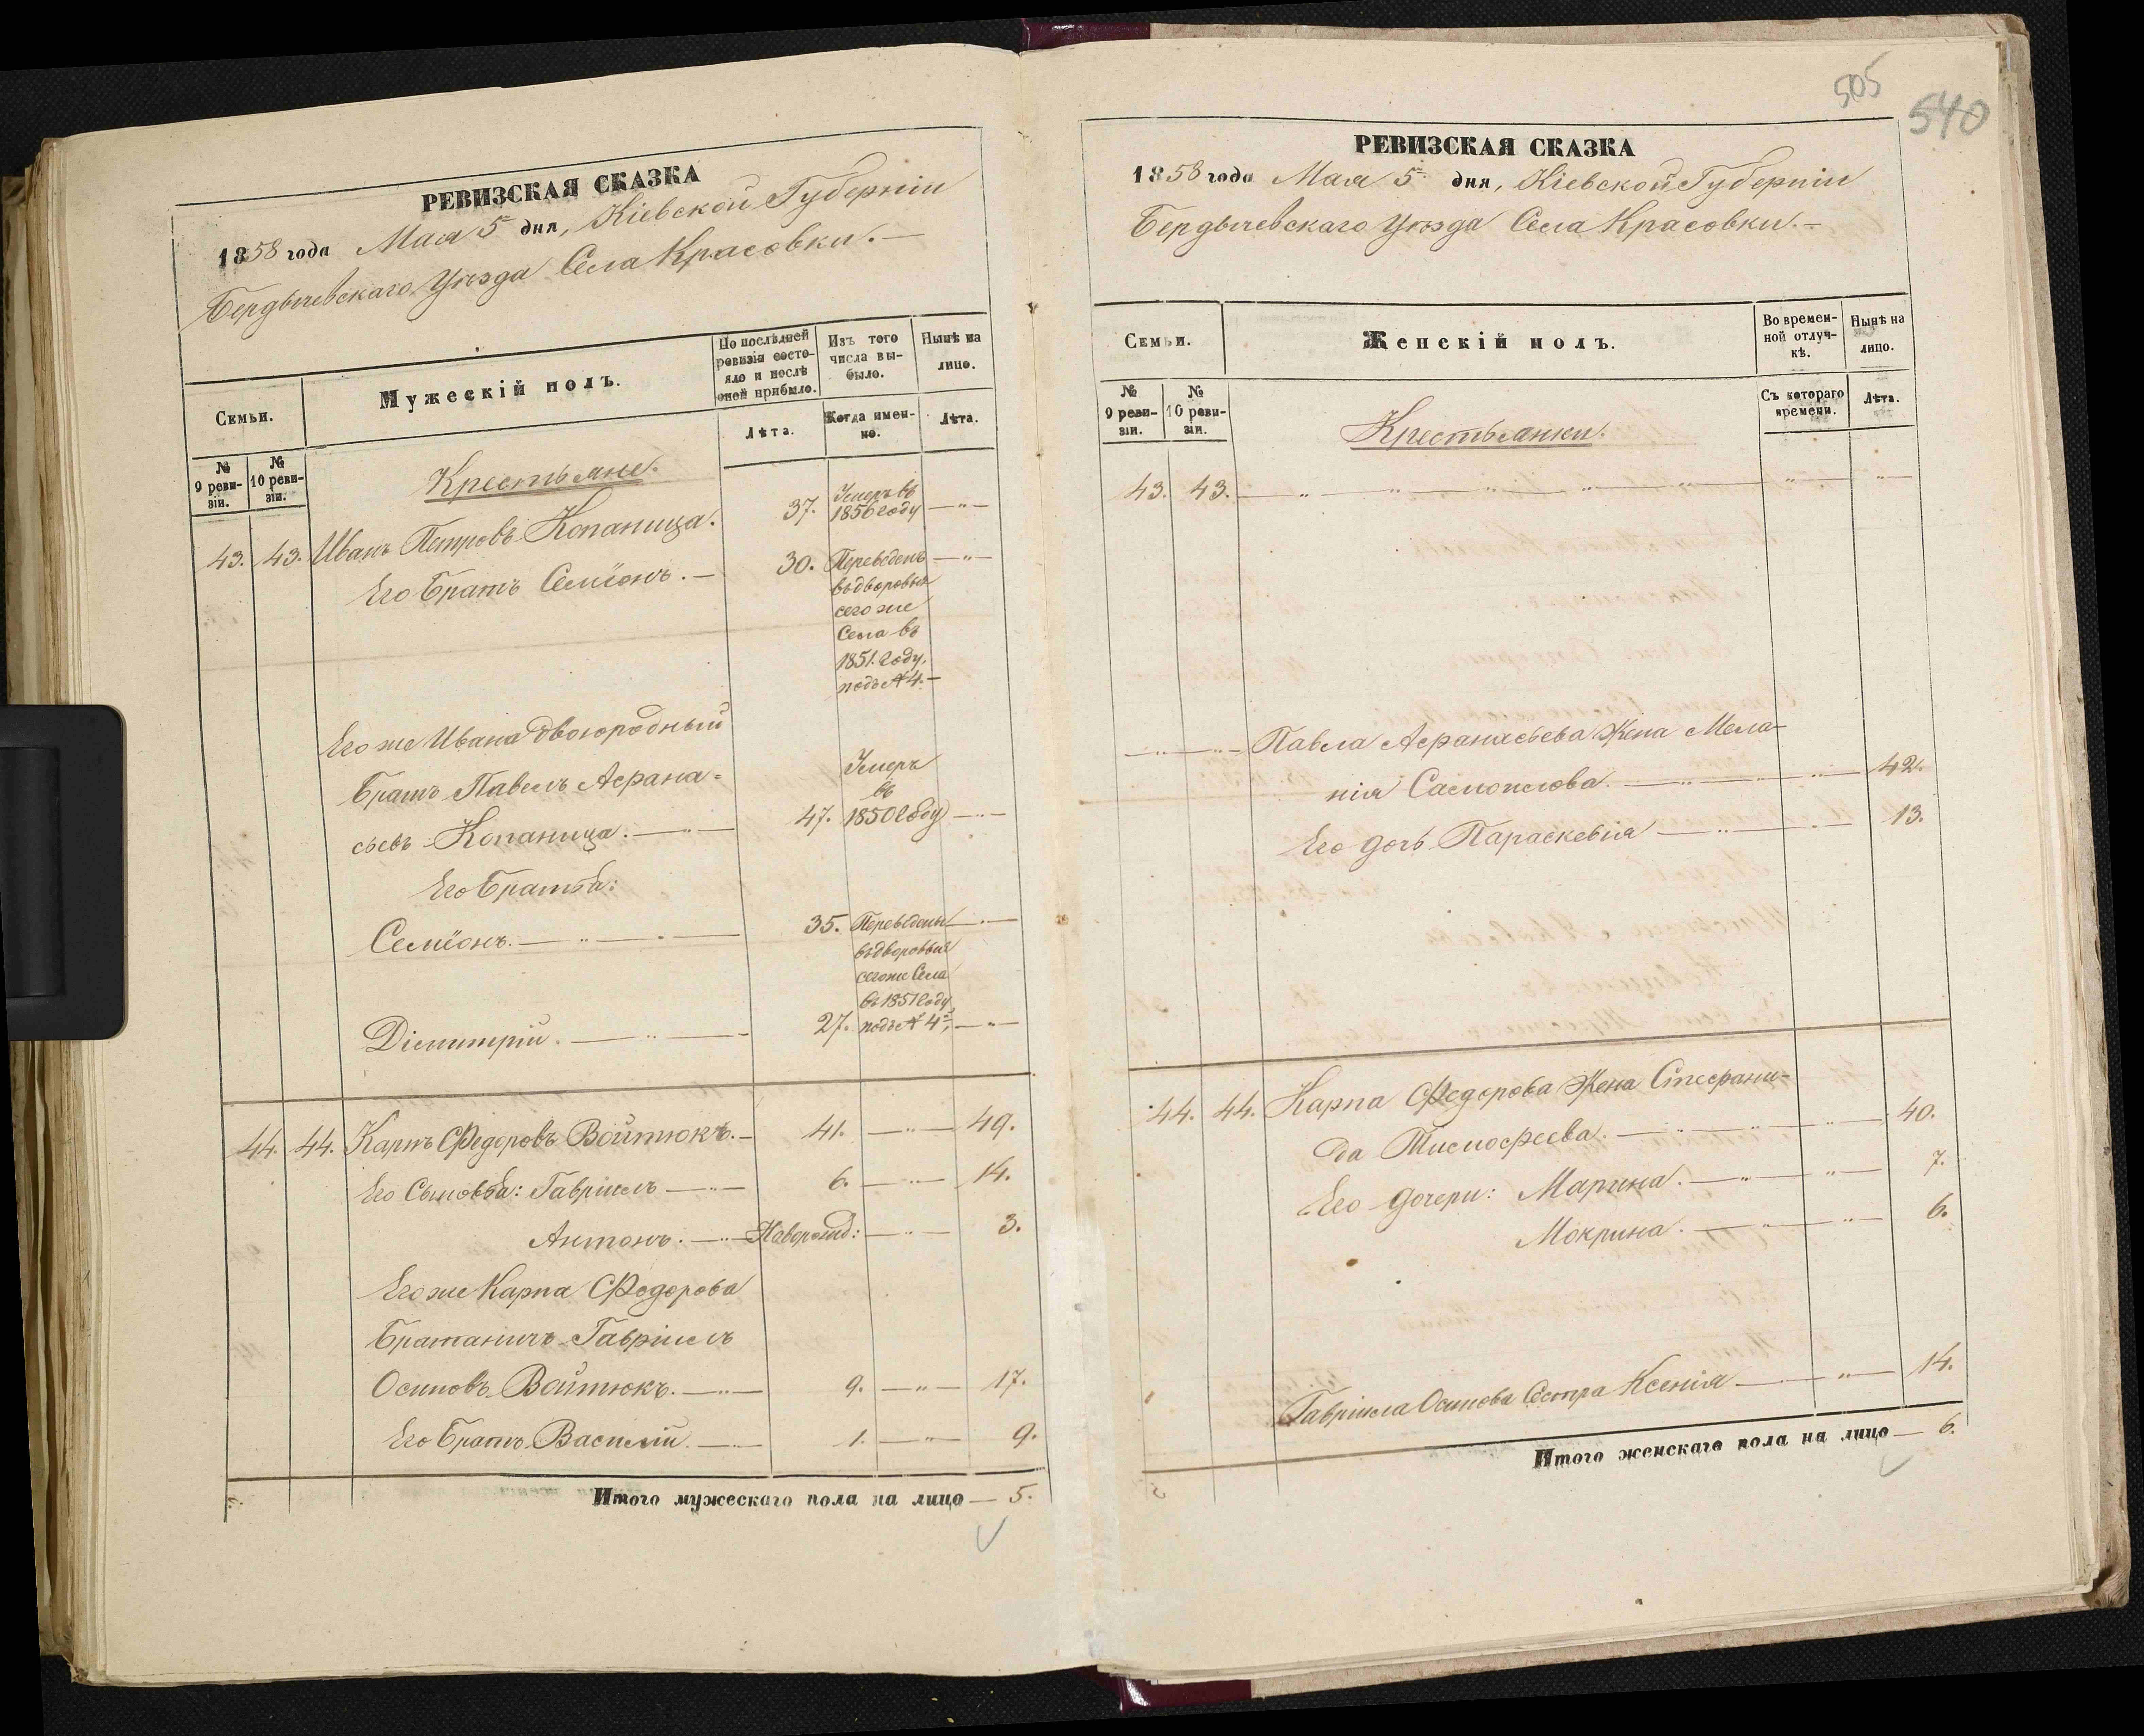 РЕВИЗСКАЯ СКАЗКА
1858 года Мая 5 дня, Кіевской Губерніи
Бердычевскаго Уѣзда Села Красовки.
Семьи.
Мужескій полъ.
По послѣдней ревизіи состояло и послѣ оной прибыло.
Изъ того числа выбыло.
Нынѣ на лицо.
№ 9 ревизіи.
№ 10 ревизіи.
Лѣта.
Когда именно.
Лѣта.
Крестьяне.
43. 43. Иванъ Петровъ Копаница. 37. Умеръ въ 1856 году — " —
Его Братъ Семіонъ. — 30. Переведенъ — " —
въ дворовыя
сего же
Села въ
1851. году,
подъ № 4. —
Его же Ивана двоюродный
Братъ Павелъ Афана=
сьевъ Копаница. — " — 47. Умеръ въ 1850 году — " —
Его Братья:
Семіонъ. — " — 35. Переведены — " —
въ дворовыя
сегоже Села
въ 1851 году
Дімитрій. — " — 27. подъ № 4, — " —
44. 44. Карпъ Федоровъ Войтюкъ. — 41. — " — 49.
Его Сыновья: Гавріилъ — " — 6. — " — 14.
Антонъ. — " — Новорожд: — " — 3.
Его же Карпа Федорова
Братаничъ Гавріилъ
Осиповъ Войтюкъ. — " — 9. — " — 17.
Его Братъ Василій. — " — 1. — " — 9.
Итого мужескаго пола на лицо — 5.
505
540
РЕВИЗСКАЯ СКАЗКА
1858 года Мая 5 дня, Кіевской Губерніи
Бердычевскаго Уѣзда Села Красовки. —
Семьи.
Женскій полъ.
Во временной отлучкѣ.
Нынѣ на лицо.
№ 9 ревизіи.
№ 10 ревизіи.
Съ котораго времени.
Лѣта.
Крестьянки.
43. 43. — " — " — " — " — " — " — " —
— " — " — Павла Афанасьева Жена Мела-
нія Самоилова. — " — " — 42.
Его дочь Параскевія — " — " — 13.
44. 44. Карпа Федорова Жена Стефани-
да Тимофеева. — " — " — 40.
Его дочери: Марина. — " — " — 7.
Мокрина. — " — " — 6.
Гавріила Осипова Сестра Ксенія — " — 14.
Итого женскаго пола на лицо — 6.